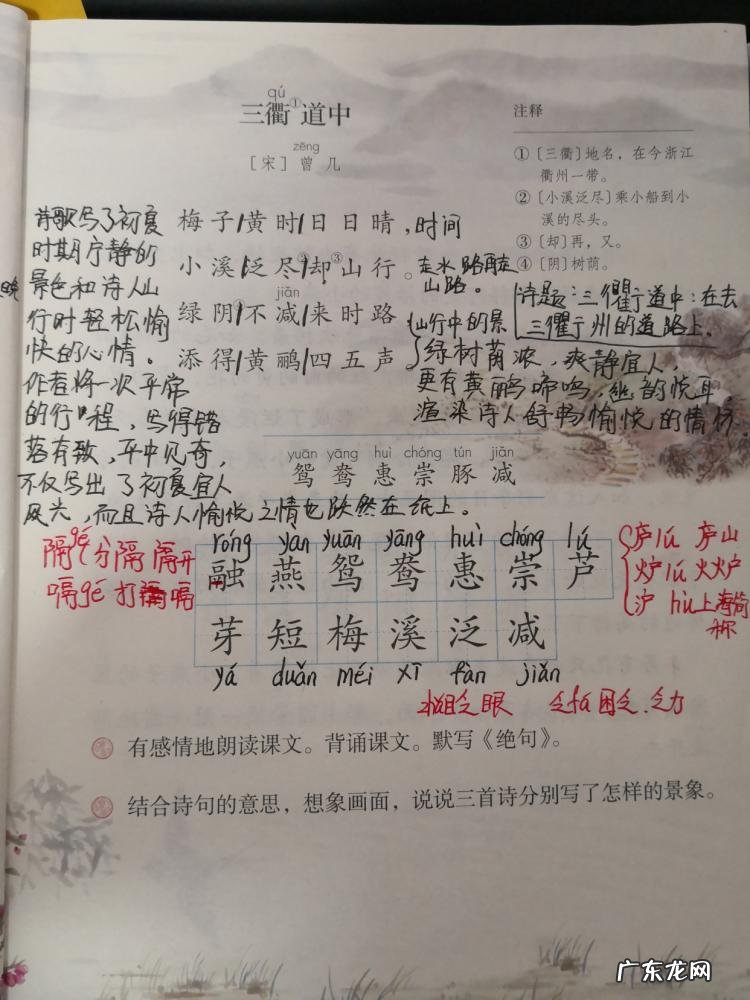 qú
三衢①道中
zēng
[宋] 曾 几
注释
①[三衢]地名，在今浙江
衢州一带。
②[小溪泛尽]乘小船到小
溪的尽头。
③[却]再，又。
④[阴]树荫。
梅子/黄时/日日晴，时间
小溪/泛尽②/却③山行。走水路再走
山路。
jiǎn
绿阴④/不减/来时路
添得/黄鹂/四五声
诗题：三衢道中：在去
三衢州的道路上。
山行中的景
绿树荫浓，爽静宜人，
更有黄鹂啼鸣，幽韵悦耳，
渲染诗人舒畅愉悦的情怀
诗歌写了初夏
时期宁静的
景色和诗人山
行时轻松愉
快的心情。
作者将一次平常
的行程，写得错
落有致，平中见奇，
不仅写出了初夏宜人
风光，而且诗人愉悦之情也跃然在纸上。
yuān yāng huì chóng tún jiǎn
鸳 鸯 惠 崇 豚 减
隔gé 分隔 隔开
嗝gé 打嗝
róng yàn yuān yāng huì chóng lú
融 燕 鸳 鸯 惠 崇 芦
芽 短 梅 溪 泛 减
yá duǎn méi xī fàn jiǎn
庐lú 庐山
炉lú 火炉
沪 hù 上海简
称
乏 困乏.乏力
有感情地朗读课文。背诵课文。默写《绝句》。
结合诗句的意思，想象画面，说说三首诗分别写了怎样的景象。
广东龙网